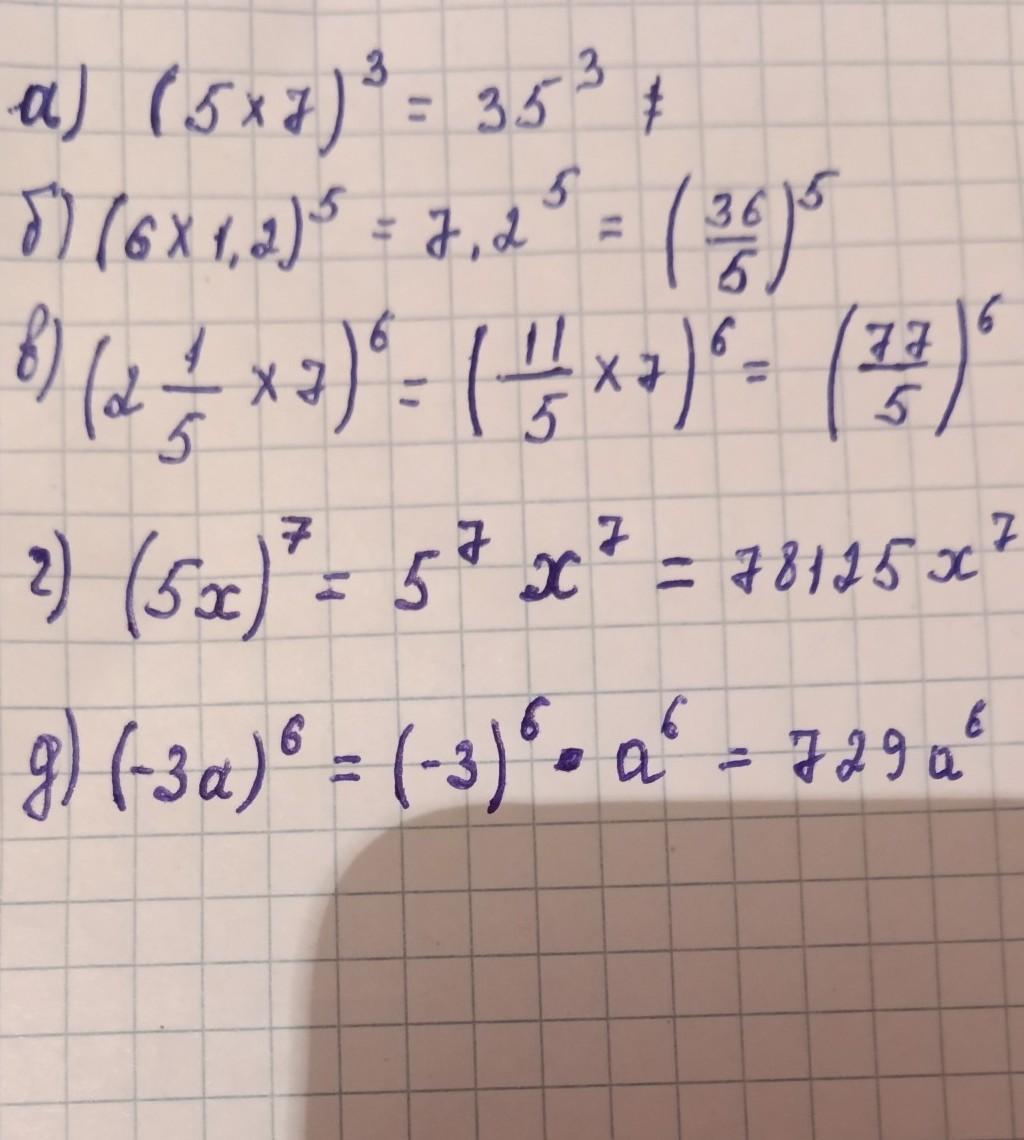 а) (5×7)³ = 35³
б) (6×1,2)⁵ = 7,2⁵ = (36/5)⁵
в) (2 1/5 ×7)⁶ = (11/5 ×7)⁶ = (77/5)⁶
г) (5x)⁷ = 5⁷ x⁷ = 78125 x⁷
д) (-3a)⁶ = (-3)⁶ · a⁶ = 729a⁶